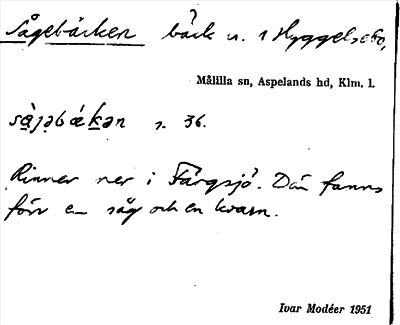 Sågebäcken bäck u. 1 Hyggelsebo,
Målilla sn, Aspelands hd, Klm. l.
sàjəbǽkən s. 36.
Rinner ner i Färgsjö. Där fanns
förr en såg och en kvarn.
Ivar Modéer 1951